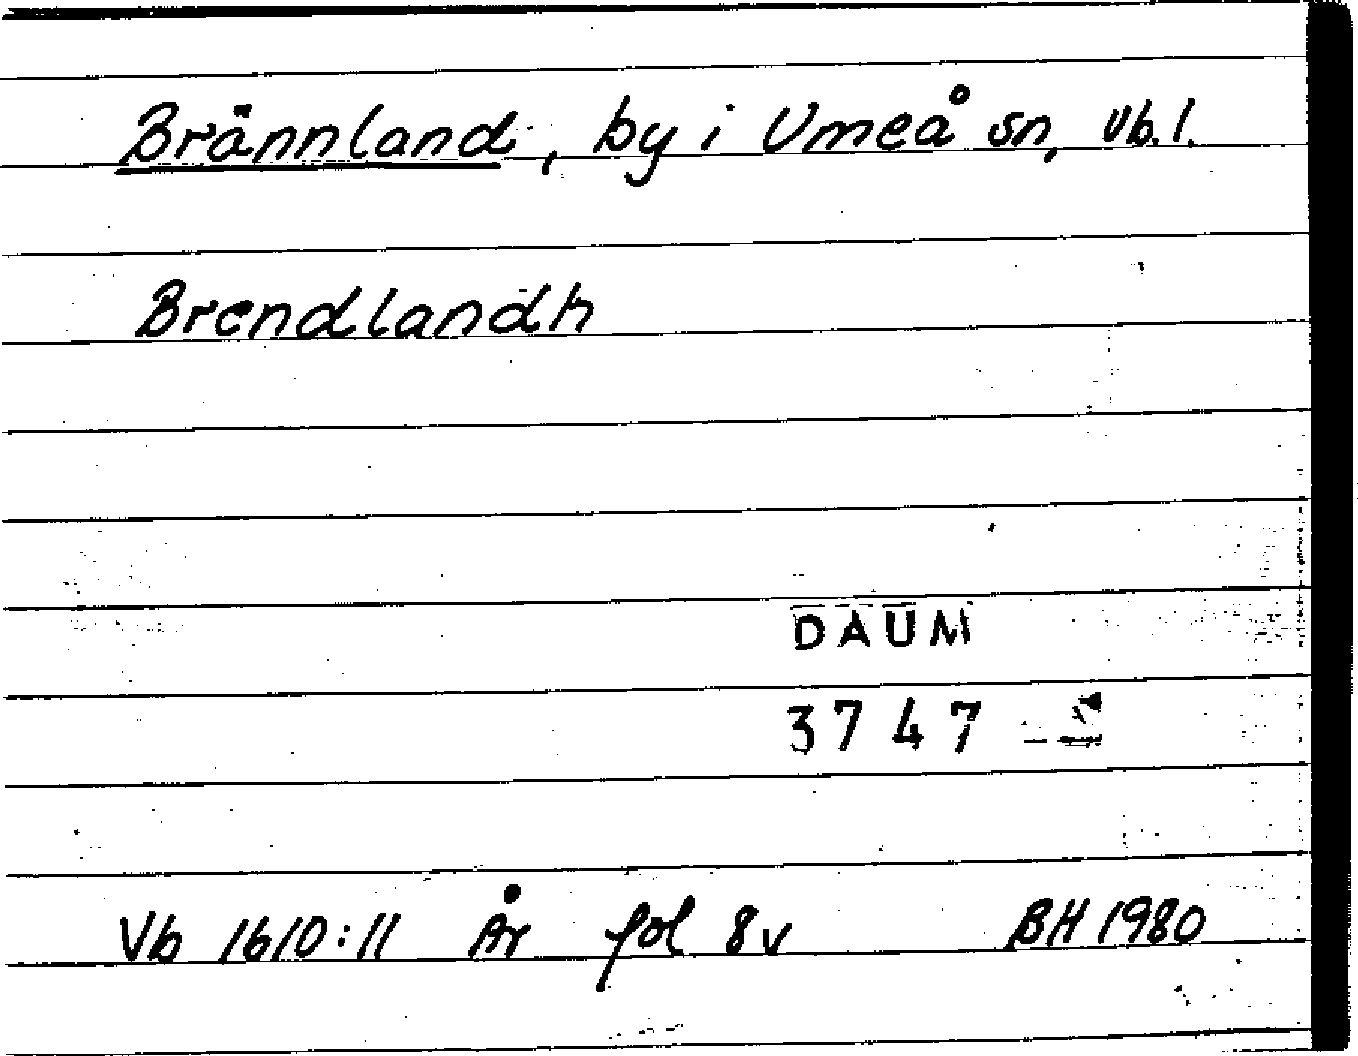 Brännland, by i Umeå sn, Vb.l.
Brendlandh
DAUM
3747
Vb 1610:11 År fol 8v BH 1980